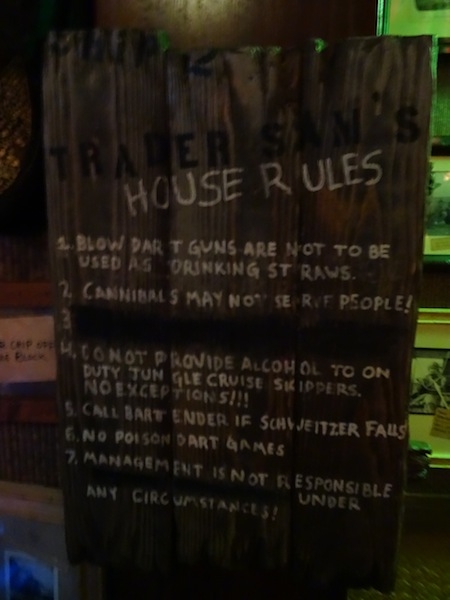 TRADER SAM'S
HOUSE RULES
1. BLOW DART GUNS ARE NOT TO BE
USED AS DRINKING STRAWS.
2. CANNIBALS MAY NOT SERVE PEOPLE!
3
4. DO NOT PROVIDE ALCOHOL TO ON
DUTY JUNGLE CRUISE SKIPPERS.
NO EXCEPTIONS!!!
5. CALL BARTENDER IF SCHWEITZER FALLS
6. NO POISON DART GAMES
7. MANAGEMENT IS NOT RESPONSIBLE
UNDER
ANY CIRCUMSTANCES!